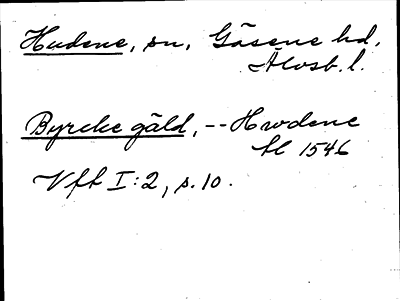 Hudene, sn, Gäsene hd,
Älvsb. l.
Byrcke gäld, -- Hwdene
hl 1546
Vft I:2, s. 10.